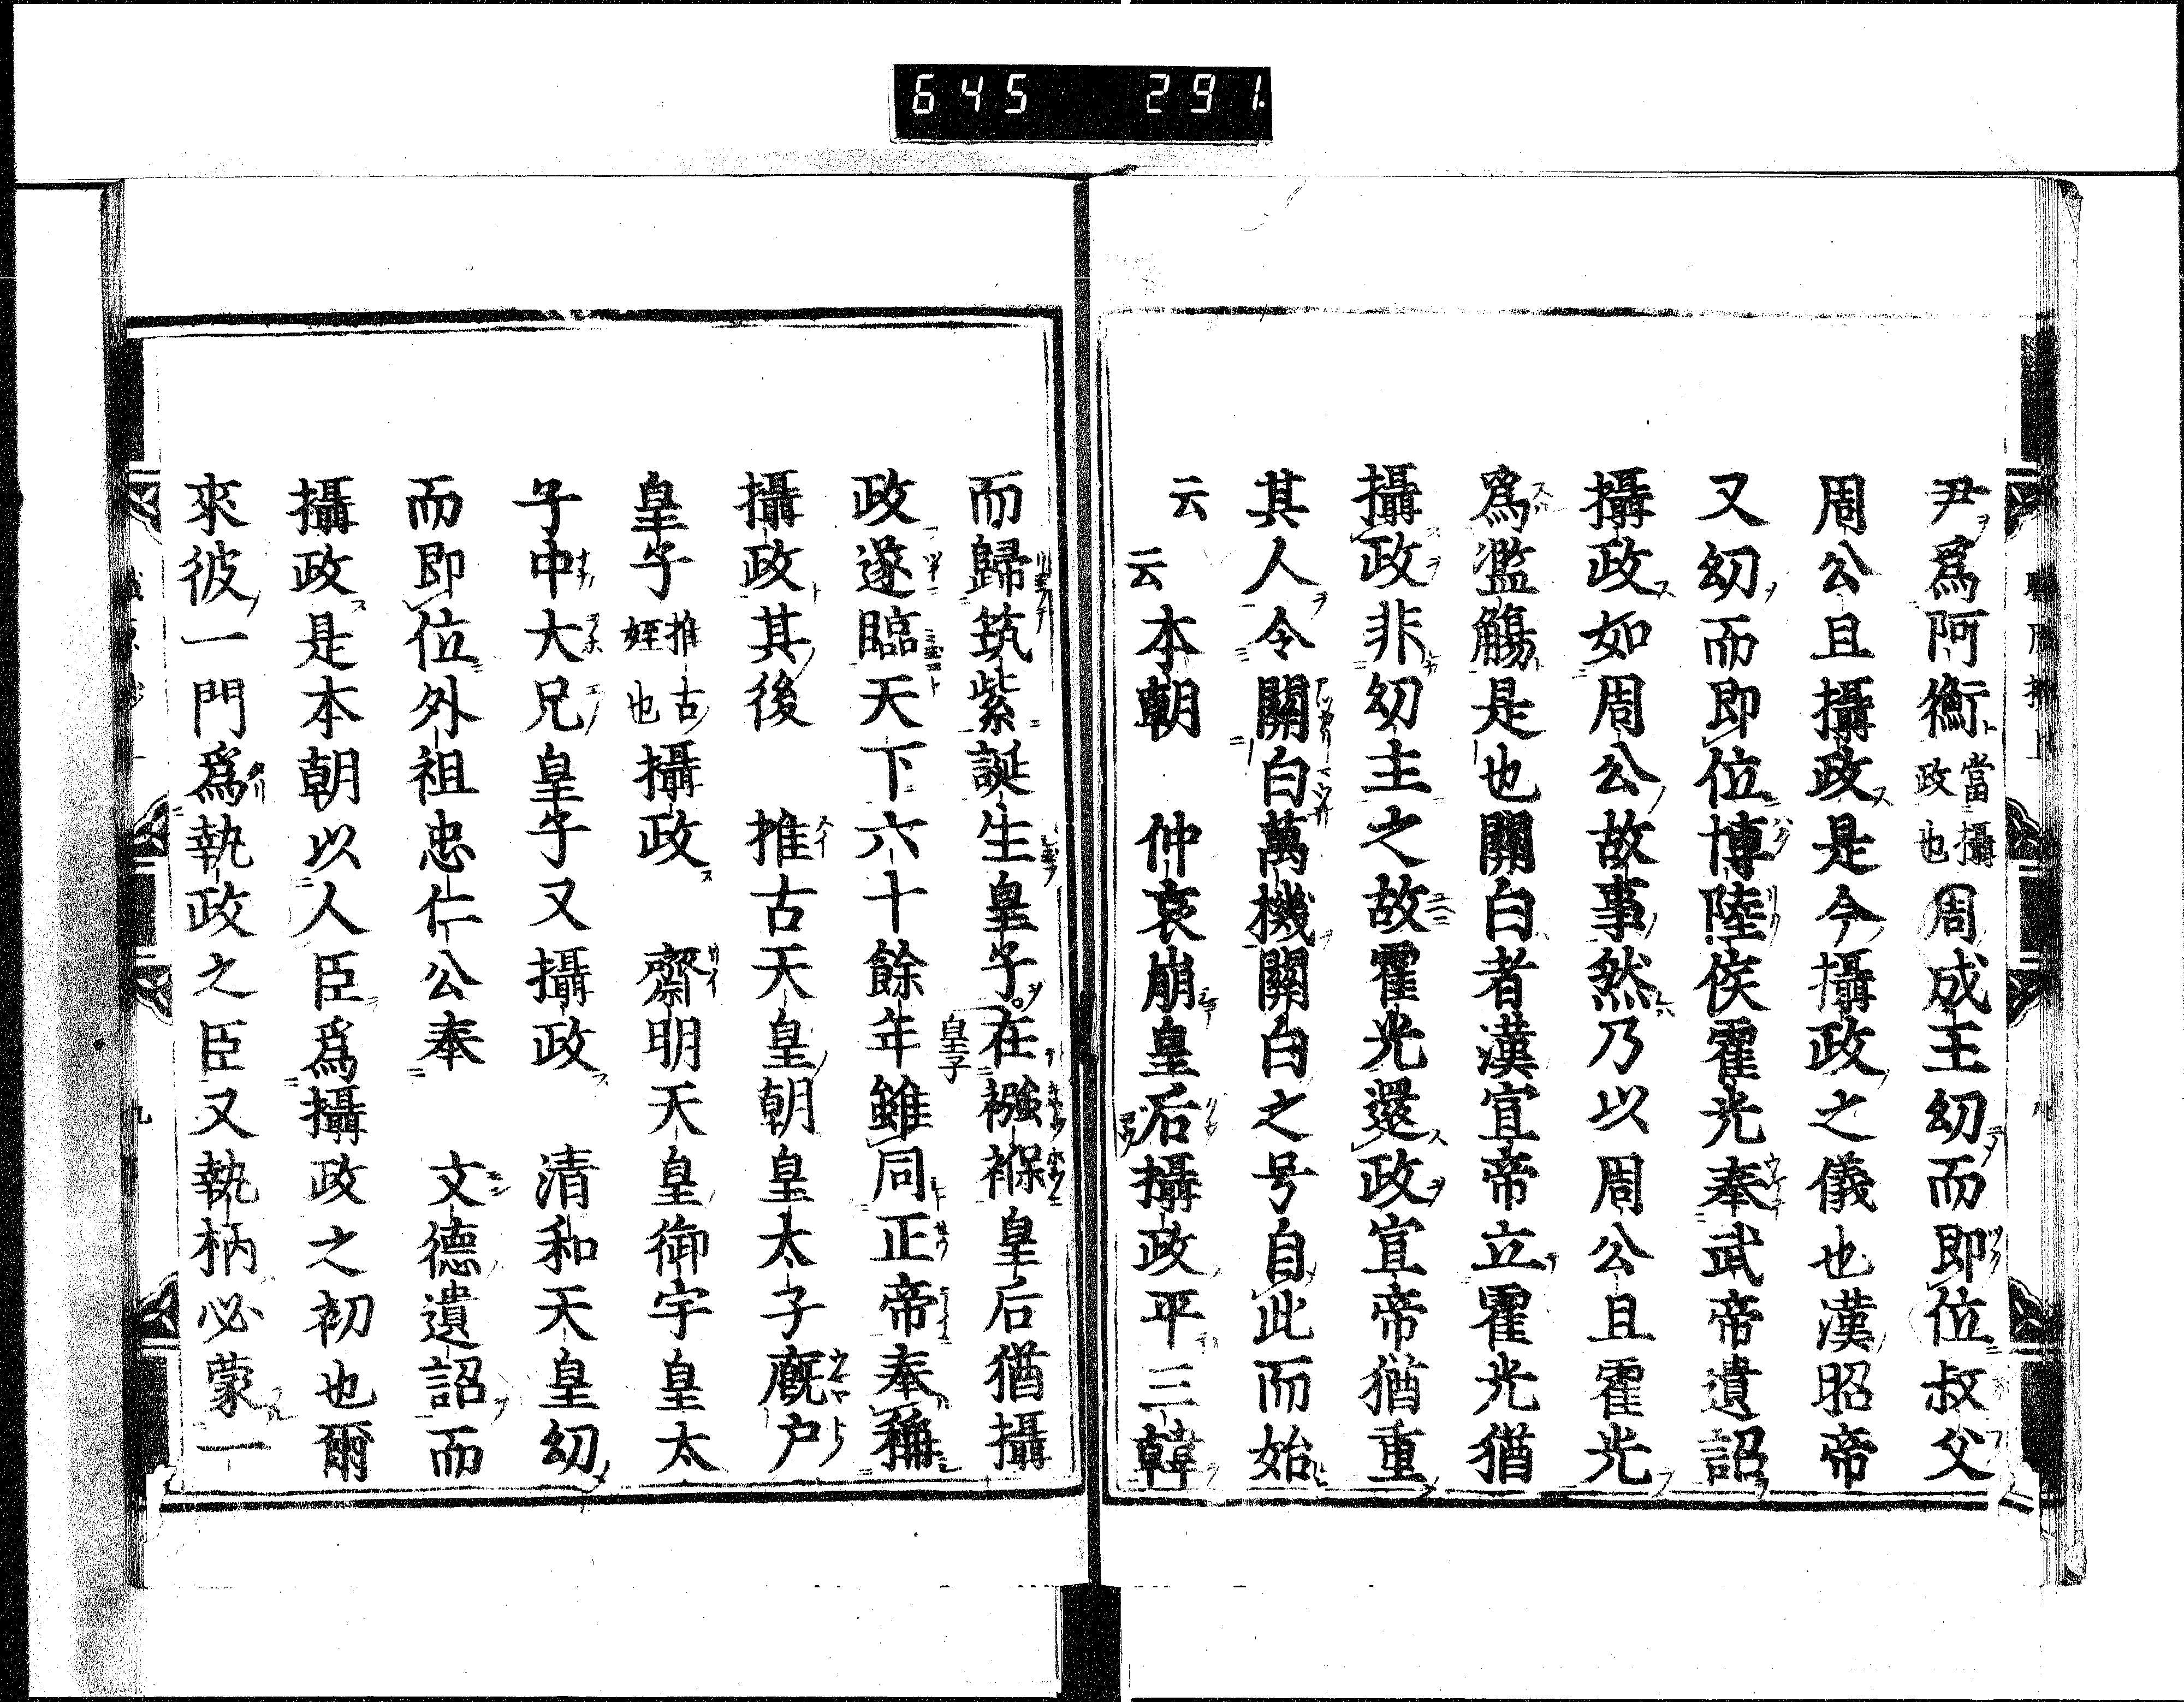 645 291
尹爲阿衡當攝政也周成王幼而即位叔父
周公且攝政是今攝政之儀也漢昭帝
又幼而即位博陸侯霍光奉武帝遺詔
攝政如周公故事然乃以周公且霍光
爲濫觴是也關白者漢宣帝立霍光猶
攝政非幼主之故霍光還政宣帝猶重
其人令關白萬機關白之号自此而始
云云本朝 仲哀崩皇后攝政平三韓
而歸筑紫誕生皇子在襁褓皇后猶攝
皇子
政遂臨天下六十餘年雖同正帝奉稱
攝政其後 推古天皇朝皇太子廐户
皇子推古姪也攝政 齋明天皇御宇皇太
子中大兄皇子又攝政 清和天皇幼
而即位外祖忠仁公奉 文德遺詔而
攝政是本朝以人臣爲攝政之初也爾
來彼一門爲執政之臣又執柄必蒙一